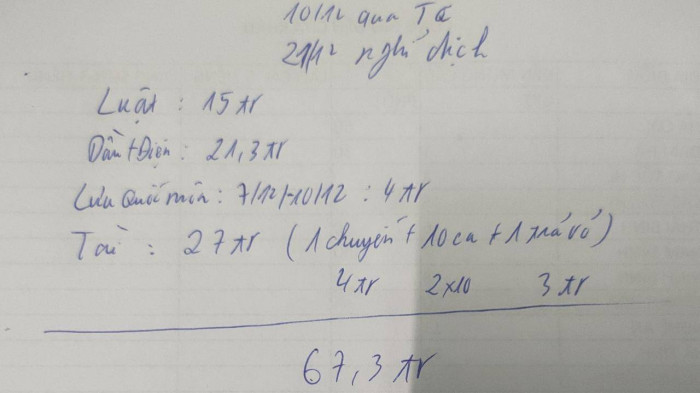 10/12 qua Tà
21/12 nghỉ dịch
Luật : 15 tr
Dầu + Điện : 21,3 tr
Lưu Quốc mân : 7/12/-10/12 : 4 tr
Tài : 27 tr ( 1 chuyến + 10 ca + 1 trả vỏ )
4 tr 2x10 3 tr
67,3 tr